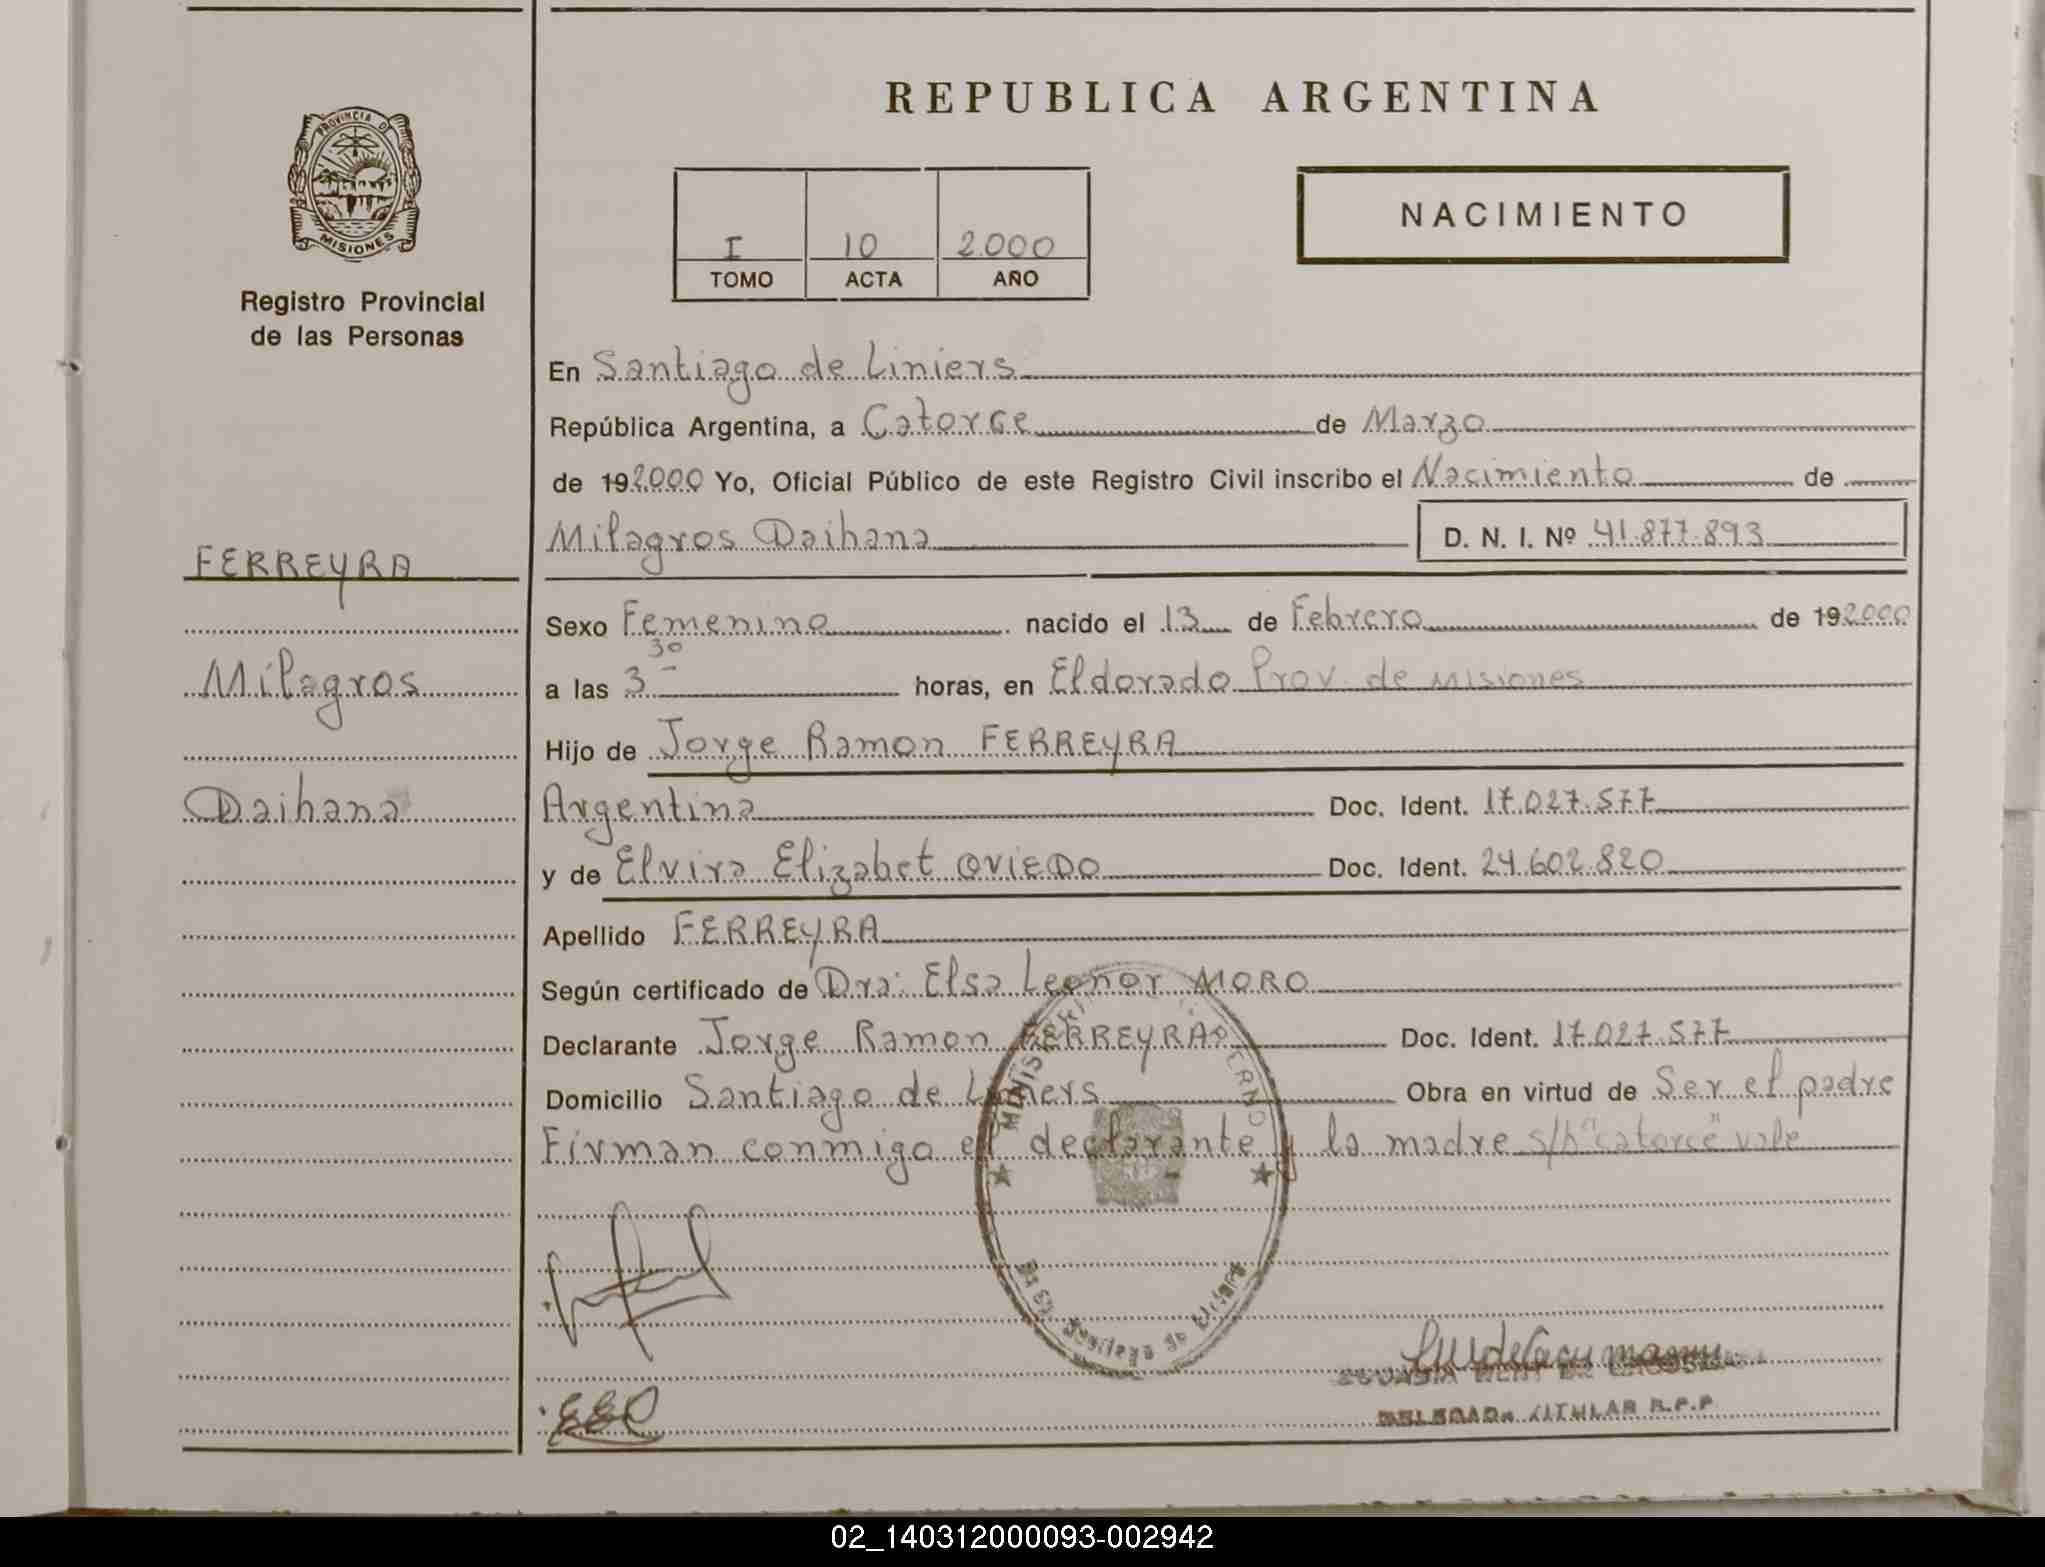 REPUBLICA ARGENTINA
PROVINCIA DE
MISIONES
Registro Provincial
de las Personas
NACIMIENTO
I 10 2.000
TOMO ACTA AÑO
En Santiago de Liniers
República Argentina, a Catorce de Marzo
de 192000 Yo, Oficial Público de este Registro Civil inscribo el Nacimiento de
Milagros Daihana D. N. I. Nº 41.877.893
FERREYRA
Milagros
Daihana
Sexo Femenino nacido el 13 de Febrero de 192000
a las 3 30 horas, en Eldorado Prov. de Misiones
Hijo de Jorge Ramon FERREYRA
Argentina Doc. Ident. 17.027.577
y de Elvira Elizabet OVIEDO Doc. Ident. 24.602.820
Apellido FERREYRA
Según certificado de Dra: Elsa Leonor MORO
Declarante Jorge Ramon FERREYRA Doc. Ident. 17.027.577
Domicilio Santiago de Liniers Obra en virtud de Ser el padre
Firman conmigo el declarante y la madre s/b "catorce" vale
DELEGADA TITULAR R.P.P
02_140312000093-002942